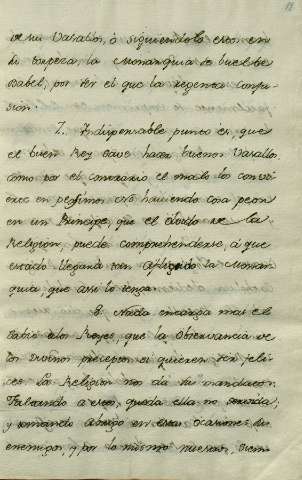 de sus Vasallos, ó siguiendola estos en
su torpeza, la Monarquia se buelbe
Babel, por ser el que la regenta confu-
sion.
7. Indispensable punto es, que
el buen Rey save hacer buenos Vasallos,
como por el contrario el malo los convi-
erte en pesimos. no haviendo cosa peor
en un Principe, que el olvido de la
Religion, puede comprehenderse, á que
estado llegará tan afligido la Monar-
quia, que assi lo tenga.
8. Nada encarga mas el
Sabio a los Reyes, que la Observancia de
los Divinos preceptos si quieren ser feli-
ces. La Religion no da sus mandatos.
Faltando a estos, queda ella no
y tomando abrigo en estas ocasiones sus
enemigos, y por lo mismo nuestros, siem-